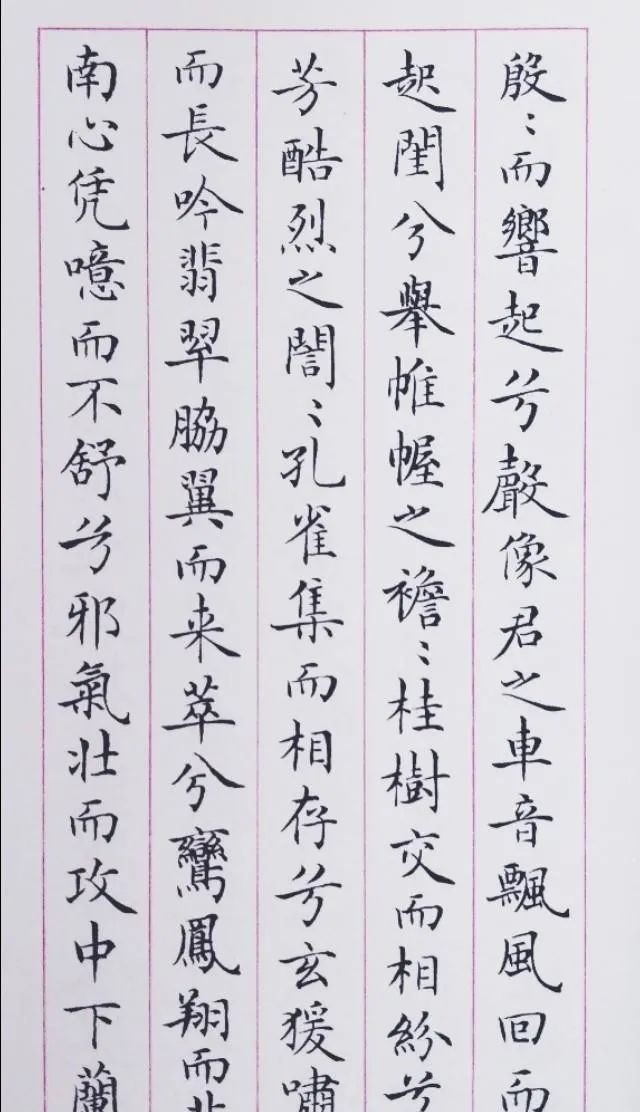 殷〻而響起兮聲像君之車音飄風回而
起閨兮舉帷幄之襜〻桂樹交而相紛兮
芳酷烈之誾〻孔雀集而相存兮玄猨嘯
而長吟翡翠脇翼而来萃兮鸞鳳翔而北
南心凭噫而不舒兮邪氣壮而攻中下蘭